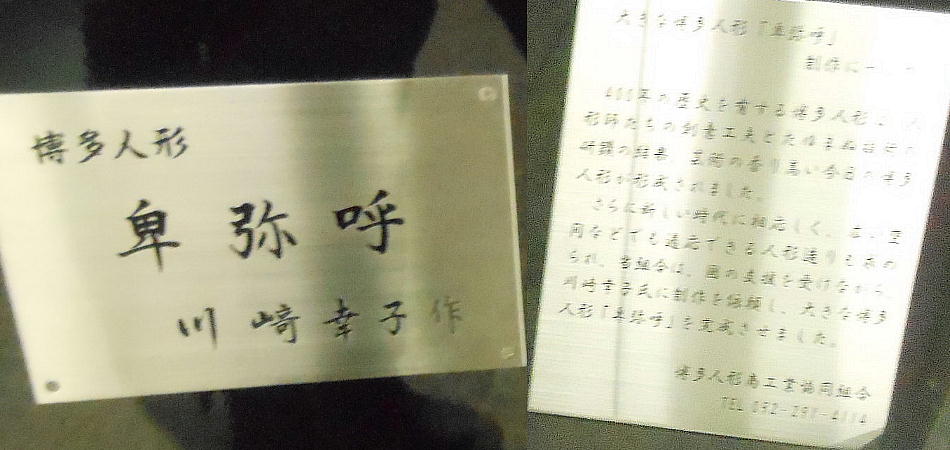 博多人形
卑弥呼
川崎幸子作
大きな博多人形「卑弥呼」
制作に
400年の歴史を有する博多人形は、人
形師たちの創意工夫とたゆまぬ技術の
研鑽の結果、芸術の香り高い今日の博多
人形が形成されました。
さらに新しい時代に相応しく、
同などでも適応できる人形造りも求め
られ、当組合は、国の支援を受けながら、
川崎幸子氏に制作を依頼し、大きな博多
人形「卑弥呼」を完成させました。
博多人形商工業協同組合
TEL 092-291-4114